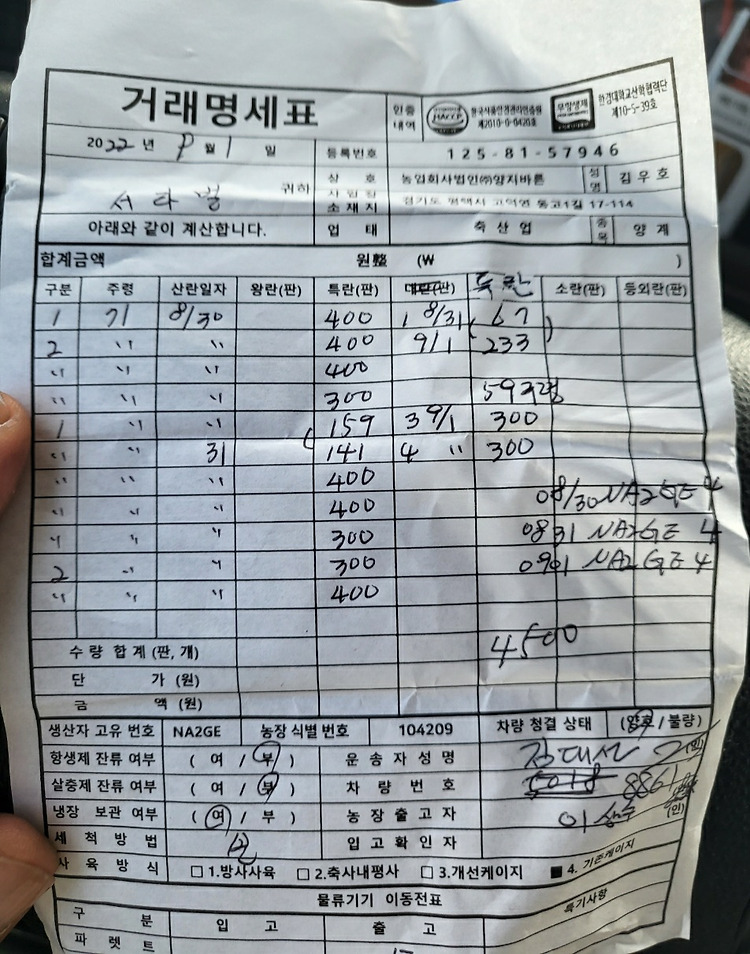 거래명세표
인증내역
HACCP
한국식품안전관리인증원
제2010-6-0420호
무항생제
한경대학교산학협력단
제10-5-39호
2022 년 9 월 1 일
등록번호 125-81-57946
귀하
상호 농업회사법인㈜양지바른 성명 김우호
사업장소재지 경기도 평택시 고덕면 동고1길 17-114
아래와 같이 계산합니다.
업태 축산업 종목 양계
합계금액 원整 (₩ )
구분 주령 산란일자 왕란(판) 특란(판) 대란(판) 특란 소란(판) 등외란(판)
1 71 8/30 400 1 8/31 ( 67 )
2 〃 〃 400 9/1 233
〃 〃 〃 400
〃 〃 〃 300 59주령
1 〃 〃 159 3 9/1 300
〃 〃 31 141 4 〃 300
〃 〃 〃 400
〃 〃 〃 400 08/30 NA2GE 4
〃 〃 〃 300 0831 NA2GE 4
2 〃 〃 300 0901 NA2GE 4
〃 〃 〃 400
수량 합계 (판, 개) 4500
단 가 (원)
금 액 (원)
생산자 고유 번호 NA2GE 농장 식별 번호 104209 차량 청결 상태 (양호 / 불량)
항생제 잔류 여부 ( 여 / 부 ) 운송자성명 (인)
살충제 잔류 여부 ( 여 / 부 ) 차량번호 8861
냉장 보관 여부 ( 여 / 부 ) 농장출고자 (인)
세척방법 입고확인자
사육방식 □ 1.방사사육 □ 2.축사내평사 □ 3.개선케이지 ■ 4. 기존케이지
물류기기 이동전표
구분 입고 출고 특기사항
파렛트